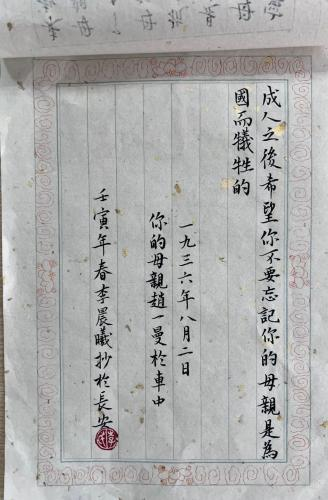 成人之後希望你不要忘記你的母親是為
國而犧牲的
一九三六年八月二日
你的母親趙一曼於車中
壬寅年春李晨曦抄於長安